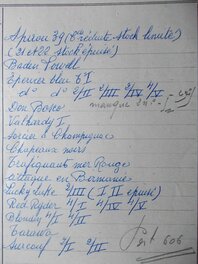 Spirou 39 (très réduite stock limité)
(21 et 22 stock épuisé)
Baden Powell
Epervier bleu 6 I
d° d° 2/II 2/III 3/IV 4/V
manque
Don Bosco
Valhardi I
Sorcier de Champignac
Chapeaux noirs
Trafiquants mer Rouge
Attaque en Birmanie
Lucky Luke 3/III (I II épuisé)
Red Ryder 4/I 4/IV 4/V
Blondin 4/I 4/II
Tarawa
Surcouf 3/I 2/III